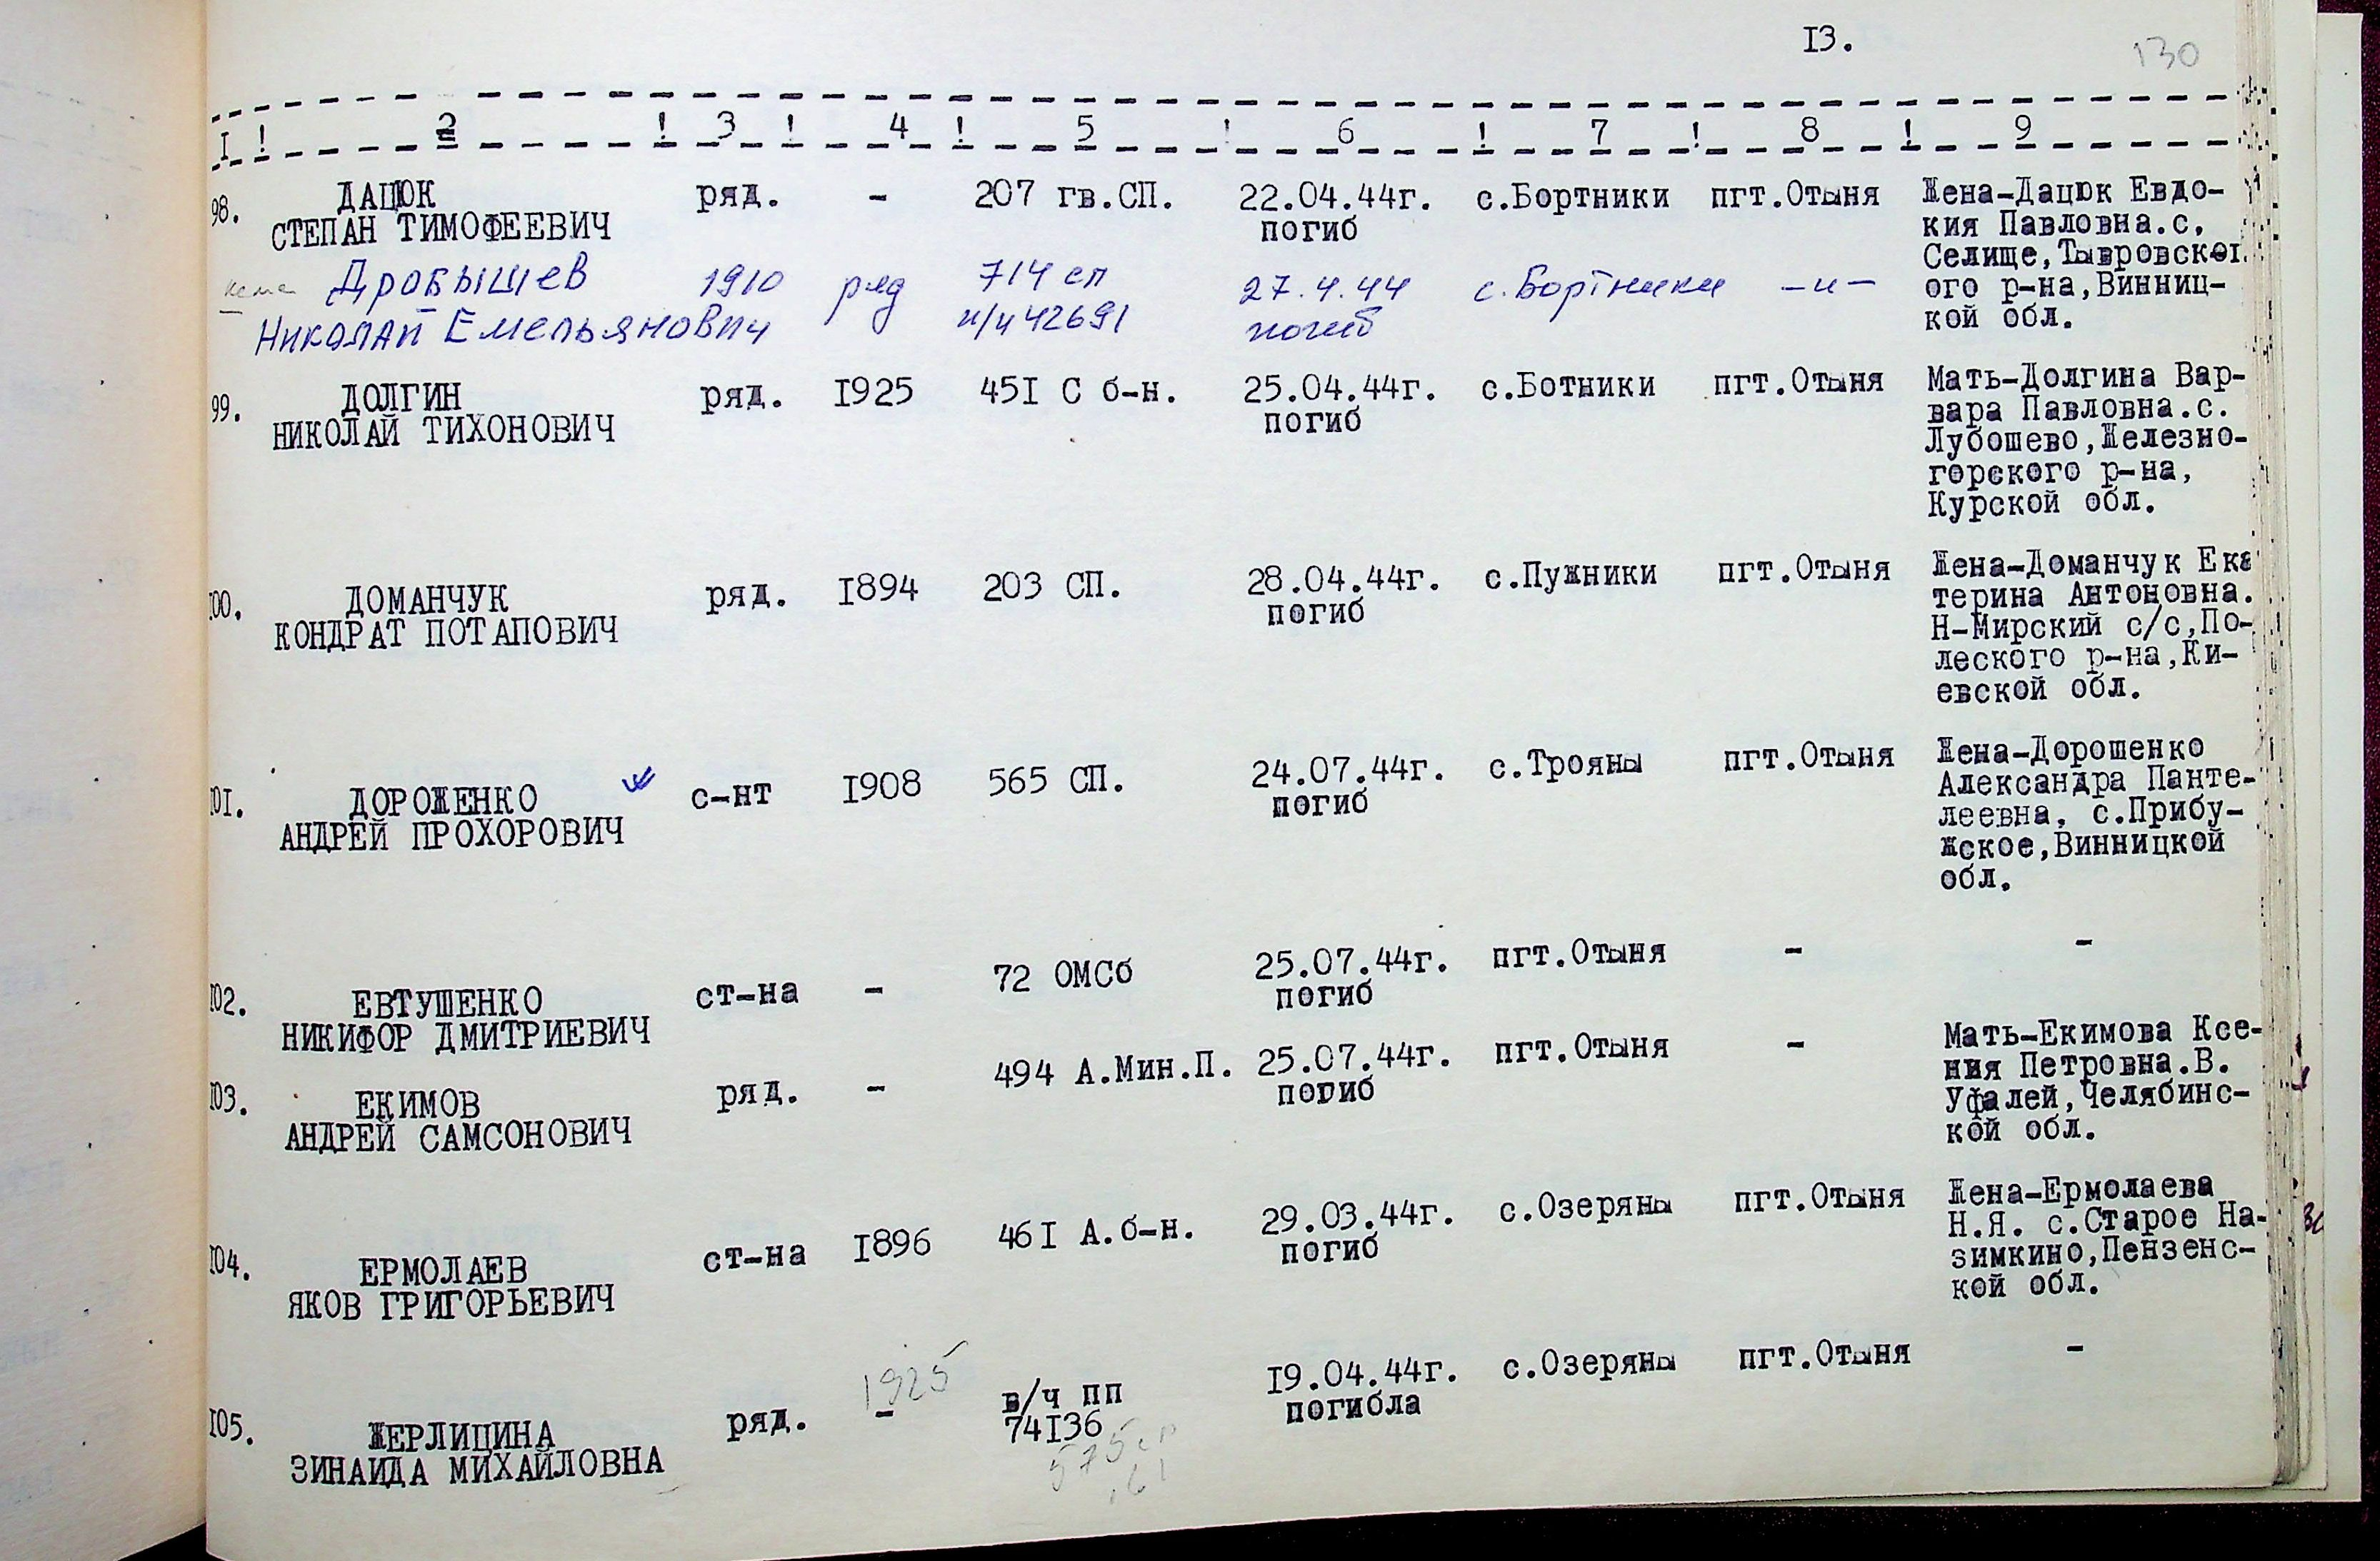 13.
130
I ! 2 ! 3 ! 4 ! 5 ! 6 ! 7 ! 8 ! 9
98. ДАЦЮК ряд. - 207 гв.СП. 22.04.44г. с.Бортники пгт.Отыня Жена-Дацюк Евдо-
СТЕПАН ТИМОФЕЕВИЧ погиб кия Павловна.с.
Селище,Тывровског
ого р-на,Винниц-
кой обл.
Дробышев 1910 ряд 714 сп 27.4.44 с.Бортники -и-
Николай Емельянович п/п 42691 погиб
99. ДОЛГИН ряд. I925 45I С б-н. 25.04.44г. с.Ботники пгт.Отыня Мать-Долгина Вар-
НИКОЛАЙ ТИХОНОВИЧ погиб вара Павловна.с.
Лубошево,Железно-
горского р-на,
Курской обл.
I00. ДОМАНЧУК ряд. I894 203 СП. 28.04.44г. с.Пужники пгт.Отыня Жена-Доманчук Ека
КОНДРАТ ПОТАПОВИЧ погиб терина Антоновна.
Н-Мирский с/с,По-
леского р-на,Ки-
евской обл.
I0I. ДОРОЖЕНКО с-нт I908 565 СП. 24.07.44г. с.Трояны пгт.Отыня Жена-Дорошенко
АНДРЕЙ ПРОХОРОВИЧ погиб Александра Панте-
леевна, с.Прибу-
жское,Винницкой
обл.
I02. ЕВТУШЕНКО ст-на - 72 ОМСб 25.07.44г. пгт.Отыня - -
НИКИФОР ДМИТРИЕВИЧ погиб
I03. ЕКИМОВ ряд. - 494 А.Мин.П. 25.07.44г. пгт.Отыня - Мать-Екимова Ксе-
АНДРЕЙ САМСОНОВИЧ погиб ния Петровна.В.
Уфалей,Челябинс-
кой обл.
I04. ЕРМОЛАЕВ ст-на I896 46I А.б-н. 29.03.44г. с.Озеряны пгт.Отыня Жена-Ермолаева
ЯКОВ ГРИГОРЬЕВИЧ погиб Н.Я. с.Старое На-
зимкино,Пензенс-
кой обл.
1925
I05. ЖЕРЛИЦИНА ряд. - в/ч пп I9.04.44г. с.Озеряны пгт.Отыня -
ЗИНАИДА МИХАЙЛОВНА 74I36 погибла
575сп